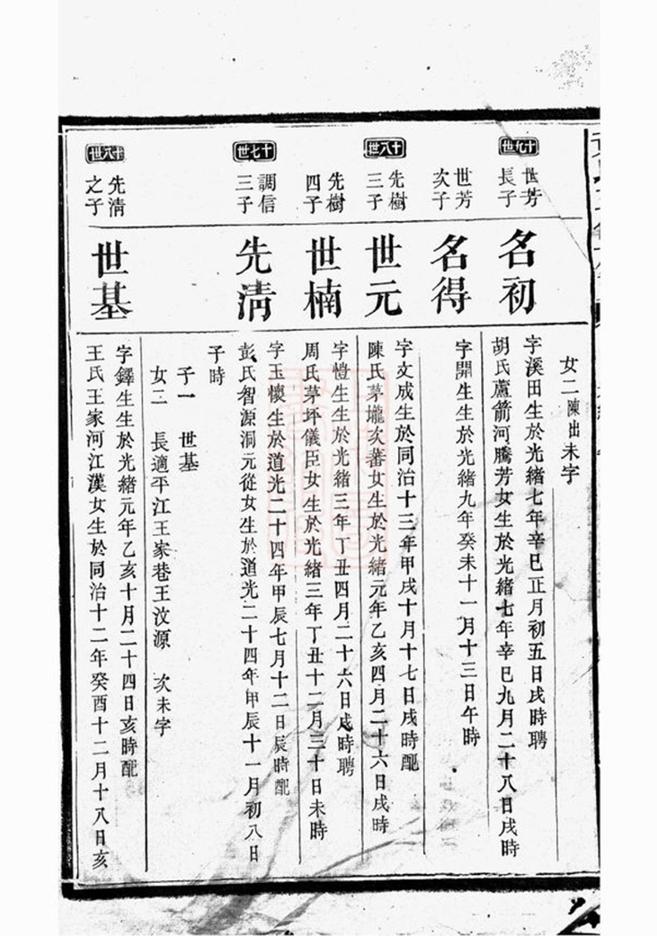 女二陳出未字
十九世
世芳
長子
名初
字溪田生於光緒七年辛巳正月初五日戌時聘
胡氏蘆箭河騰芳女生於光緒七年辛巳九月二十八日戌時
世芳
次子
名得
字開生生於光緒九年癸未十一月十三日午時
十八世
先樹
三子
世元
字文成生於同治十三年甲戌十月十七日戌時配
陳氏茅壠次蕃女生於光緒元年乙亥四月二十六日戌時
先樹
四子
世楠
字愷生生於光緒三年丁丑四月二十六日戌時聘
周氏茅坪儀臣女生於光緒三年丁丑十二月三十日未時
十七世
調信
三子
先淸
字玉懷生於道光二十四年甲辰七月十二日辰時配
彭氏智源洞元從女生於道光二十四年甲辰十一月初八日
子時
子一 世基
女二 長適平江王家巷王汶源 次未字
十八世
先淸
之子
世基
字鐸生生於光緒元年乙亥十月二十四日亥時配
王氏王家河江漢女生於同治十二年癸酉十二月十八日亥